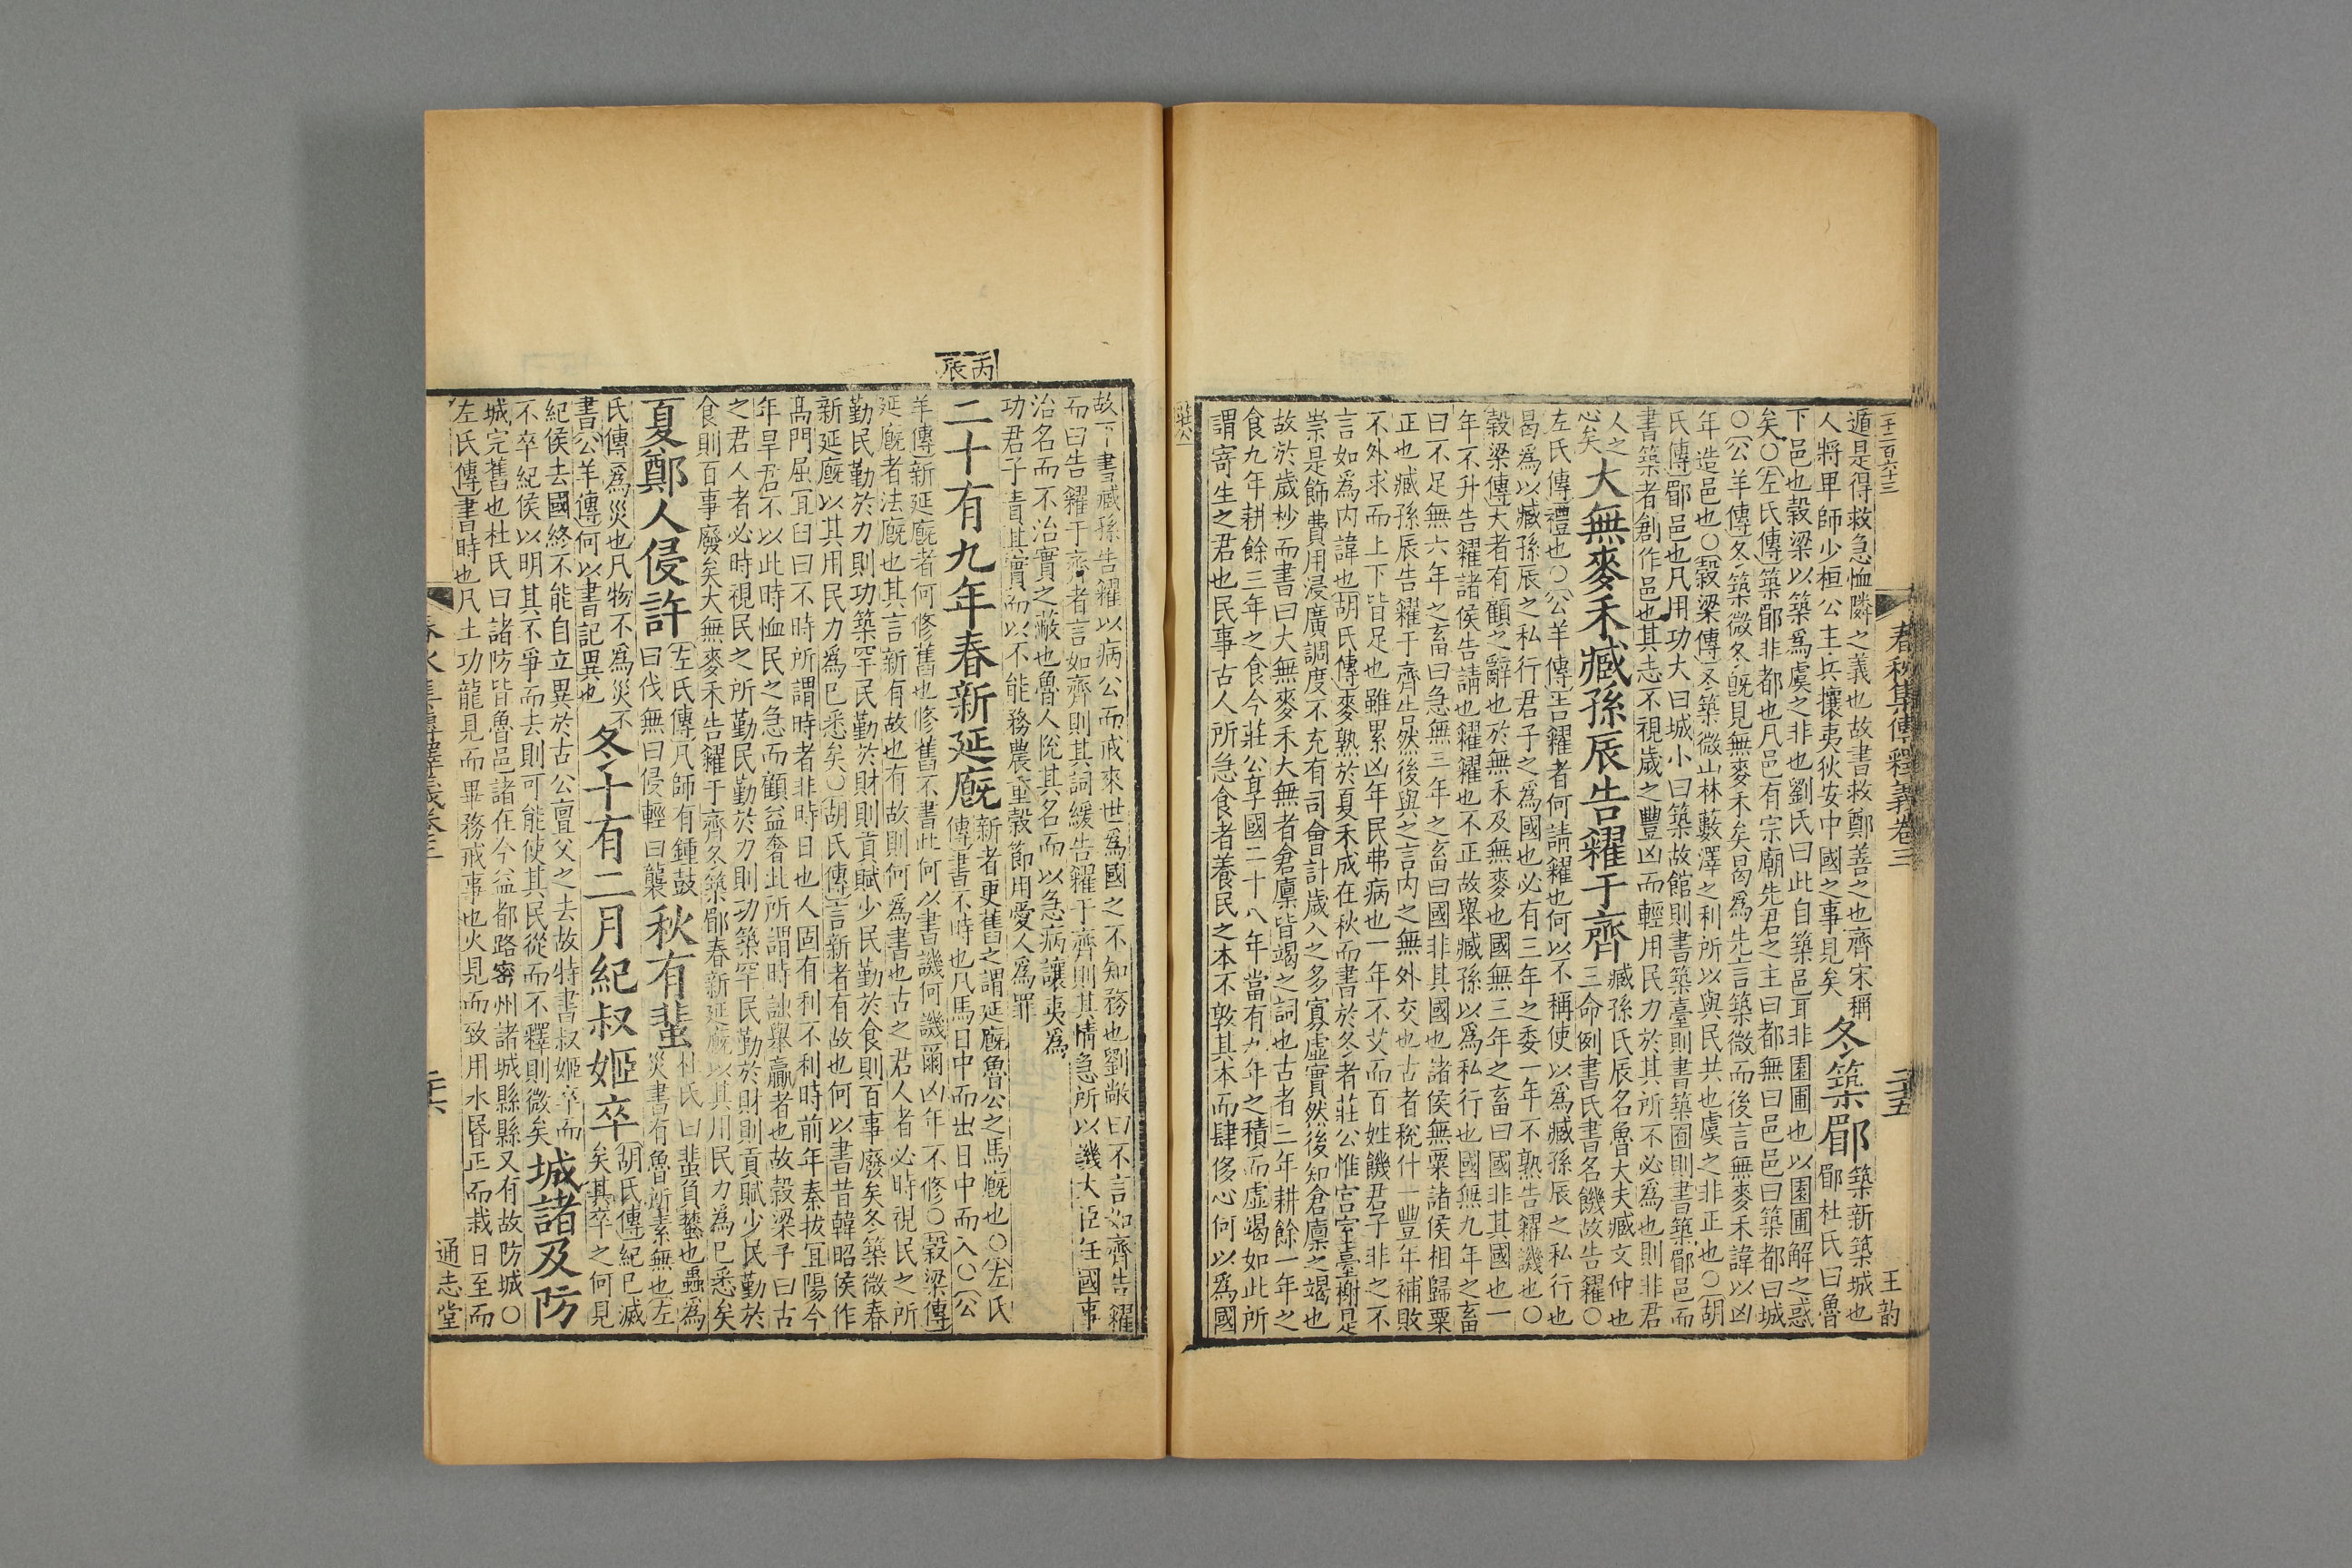 一千二百六十三
春秋集傳釋義卷三
二十五
王韵
遁是得救急恤隣之義也故書救鄭善之也齊宋稱
人將甲師少桓公主兵攘夷狄安中國之事見矣
冬築郿
築新築城也
郿杜氏曰魯
下邑也榖梁以築為虞之非也劉氏曰此自築邑耳非園圃也以園圃解之惑
矣○左氏傳築郿非都也凡邑有宗廟先君之主曰都無曰邑邑曰築都曰城
○公羊傳冬築微冬旣見無麥禾矣曷為先言築微而後言無麥禾諱以凶
年造邑也○榖梁傳冬築微山林藪澤之利所以與民共也虞之非正也○胡
氏傳郿邑也凡用功大曰城小曰築故館則書築臺則書築囿則書築郿邑而
書築者創作邑也其志不視歲之豐凶而輕用民力於其所不必為也則非君
人之
心矣
大無麥禾臧孫辰告糴于齊
臧孫氏辰名魯大夫臧文仲也
三命例書氏書名饑故告糴○
左氏傳禮也○公羊傳告糴者何請糴也何以不稱使以為臧孫辰之私行也
曷為以臧孫辰之私行君子之為國也必有三年之委一年不熟告糴譏也○
榖梁傳大者有顧之辭也於無禾及無麥也國無三年之畜曰國非其國也一
年不升告糴諸侯告請也糴糴也不正故舉臧孫以為私行也國無九年之畜
曰不足無六年之畜曰急無三年之畜曰國非其國也諸侯無粟諸侯相歸粟
正也臧孫辰告糴于齊告然後與之言内之無外交也古者稅什一豐年補敗
不外求而上下皆足也雖累凶年民弗病也一年不艾而百姓饑君子非之不
言如為内諱也胡氏傳麥熟於夏禾成在秋而書於冬者莊公惟宫室臺榭是
崇是飾費用浸廣調度不充有司會計歲入之多寡虛實然後知倉廩之竭也
故於歲杪而書曰大無麥禾大無者倉廩皆竭之詞也古者三年耕餘一年之
食九年耕餘三年之食今莊公享國二十八年當有九年之積而虛竭如此所
謂寄生之君也民事古人所急食者養民之本不敦其本而肆侈心何以為國
莊公
故下書臧孫告糴以病公而戒來世為國之不知務也劉敞曰不言如齊告糴
而曰告糴于齊者言如齊則其詞緩告糴于齊則其情急所以譏大臣任國事
治名而不治實之蔽也魯人悅其名而以急病讓夷為
功君子責其實而以不能務農重榖節用愛人為罪
丙辰
二十有九年春新延廐
新者更舊之謂延廐魯公之馬廐也○左氏
傳書不時也凡馬日中而出日中而入○公
羊傳新延廐者何修舊也修舊不書此何以書譏何譏爾凶年不修○榖梁傳
延廐者法廐也其言新有故也有故則何為書也古之君人者必時視民之所
勤民勤於力則功築罕民勤於財則貢賦少民勤於食則百事廢矣冬築微春
新延廐以其用民力為已悉矣○胡氏傳言新者有故也何以書昔韓昭侯作
高門屈宜臼曰不時所謂時者非時日也人固有利不利時前年秦拔宜陽今
年旱君不以此時恤民之急而顧益奢此所謂時詘舉贏者也故榖梁子曰古
之君人者必時視民之所勤民勤於力則功築罕民勤於財則貢賦少民勤於
食則百事廢矣大無麥禾告糴于齊冬築郿春新延廐以其用民力為已悉矣
夏鄭人侵許
左氏傳凡師有鍾鼓
曰伐無曰侵輕曰襲
秋有蜚
杜氏曰蜚負蠜也蟲為
災書有魯所素無也左
氏傳為災也凡物不為災不
書公羊傳何以書記異也
冬十有二月紀叔姬卒
胡氏傳紀已滅
矣其卒之何見
紀侯去國終不能自立異於古公亶父之去故特書叔姬卒而
不卒紀侯以明其不爭而去則可能使其民從而不釋則微矣
城諸及防
城完舊也杜氏曰諸防皆魯邑諸在今益都路密州諸城縣縣又有故防城○
左氏傳書時也凡土功龍見而畢務戒事也火見而致用水昏正而栽日至而
春秋集傳釋義卷三
二十六
通志堂